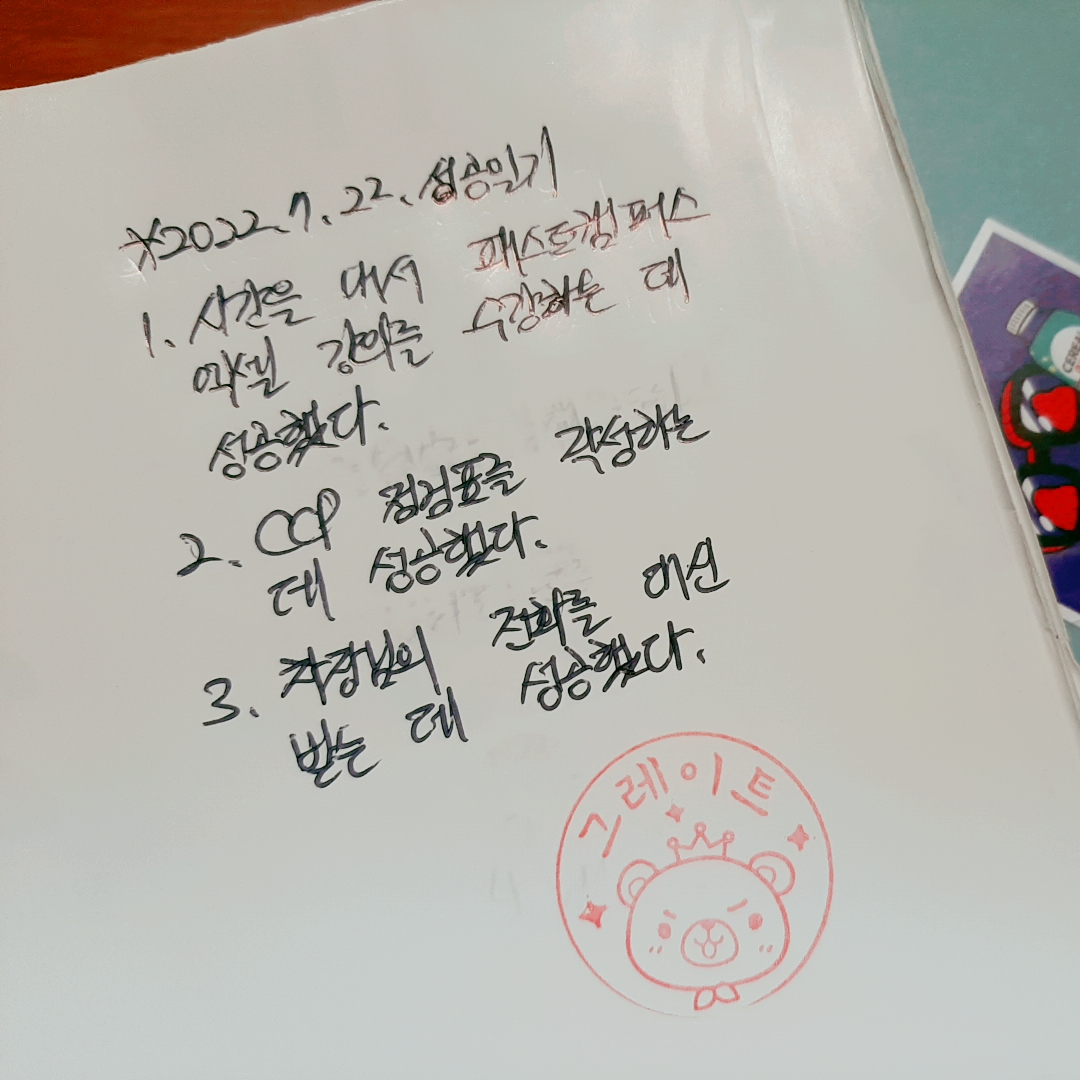 *2022.7.22. 성공일기
1. 시간을 내서 패스트캠퍼스
엑셀 강의를 수강하는 데
성공했다.
2. CCP 점검표를 작성하는
데 성공했다.
3. 차장님의 전화를 대신
받는 데 성공했다.
그레이트
CEREAL